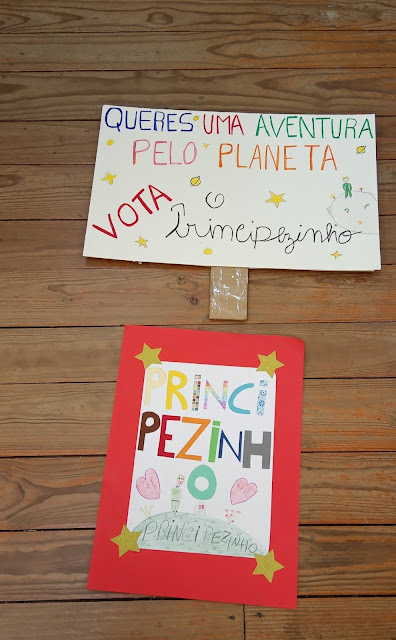 QUERES UMA AVENTURA
PELO PLANETA
VOTA O
Principezinho
PRINCI
PEZINH
O
PRINCIPEZINHO